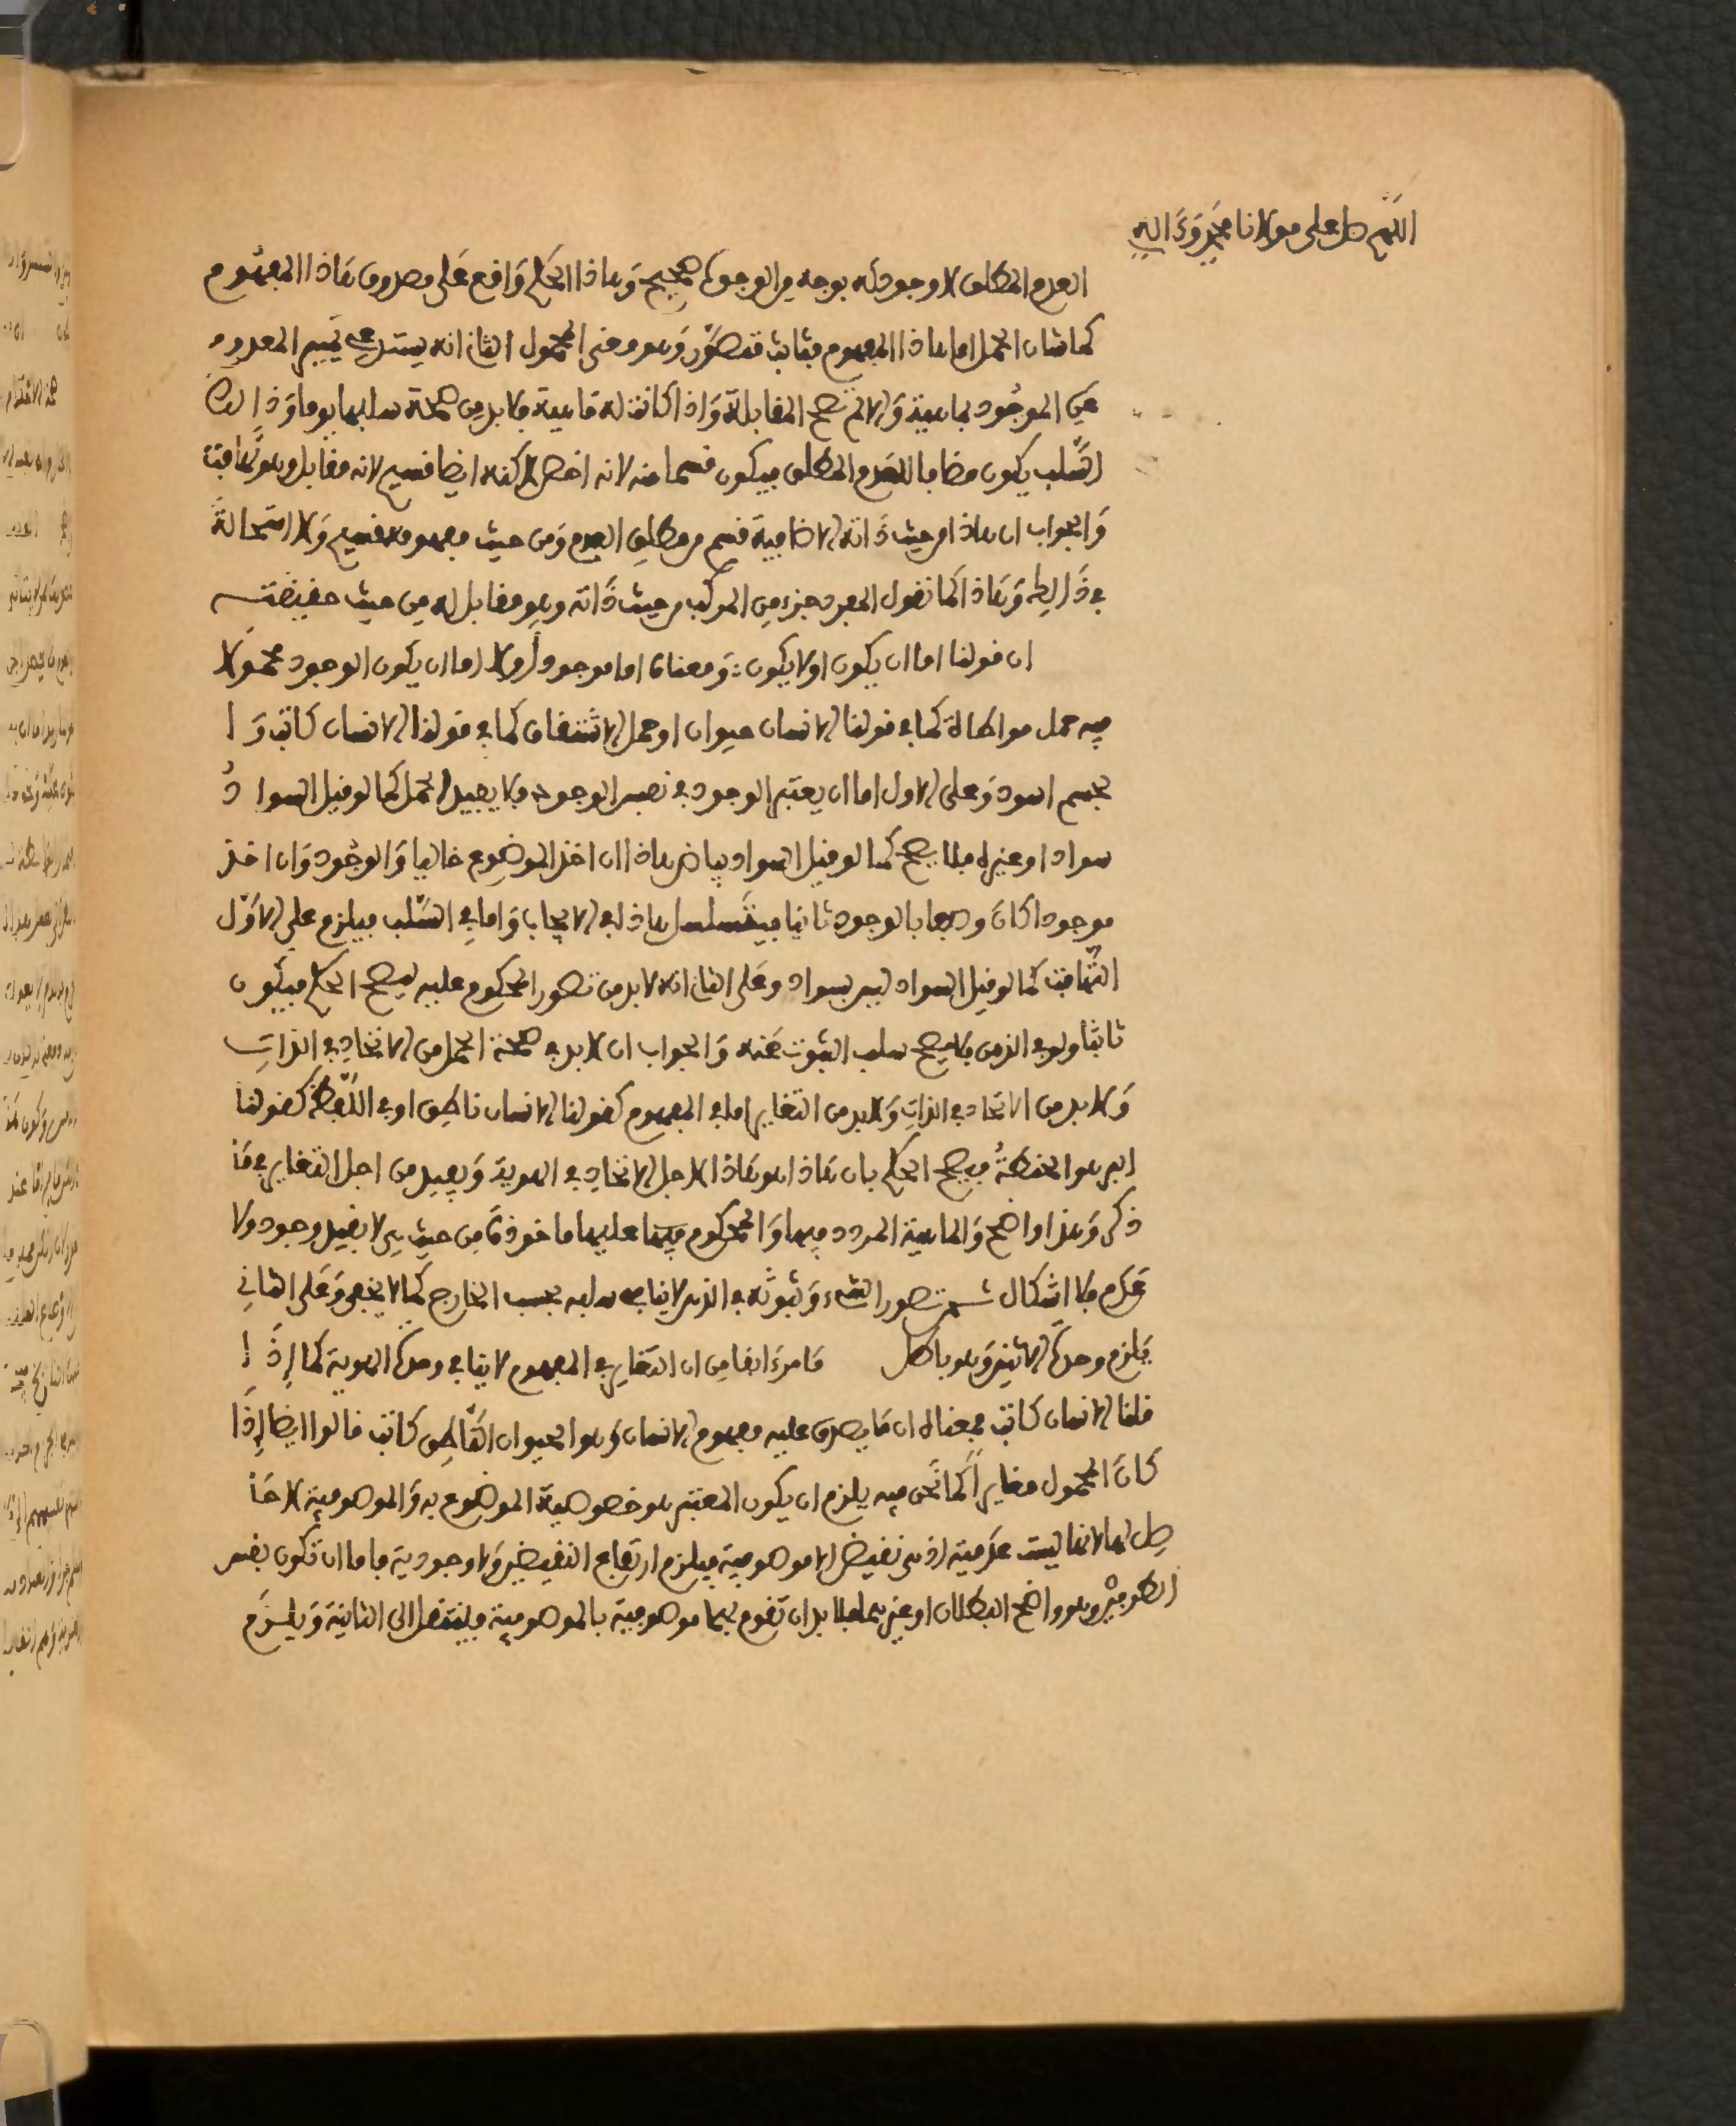 اللهم صل على مولانا محمد وءاله
العدم المطلق لا وجود له بوجه من الوجوه صحيح وهاذا الحكم واقع على مصدوق هاذا المفهوم
كما شان الحمل اما هاذا المفهوم فثابت متصور وهو معنى المحمول الثاني انه يستدعي تمييز المعدوم
عن الموجود بماهية والا لم تصح المقابلة واذا كانت له ماهية فلا بد من صحة سلبها يوما وذالك
السلب يكون مضافا للعدم المطلق فيكون قسما منه لانه اخص لاكنه ايضا قسيم لانه مقابل وهو تهافت
والجواب ان هاذا من حيث ذاته الاضافية قسم من مطلق العدم ومن حيث مفهومه قسيم ولا استحالة
في ذالك وهاذا كما تقول المفرد جزء من المركب من حيث ذاته وهو مقابل له من حيث حقيقته
ان قولنا اما ان يكون او لا يكون ومعناه اما موجود او لا اما ان يكون الوجود محمولا
فيه حمل مواطاة كما في قولنا الانسان حيوان او حمل الاشتقاق كما في قولنا الانسان كاتب وا
لجسم اسود وعلى الاول اما ان يعتبر الوجود في نفس الوجود فلا يفيد الحمل كما لو قيل السواد
سواد او غيره فلا يصح كما لو قيل السواد بياض هاذا ان اخذ الموضوع خاليا والوجود وان اخذ
موجودا كان وصفا بالوجود ثانيا فيتسلسل هاذا في الايجاب واما في السلب فيلزم على الاول
التهافت كما لو قيل السواد ليس بسواد وعلى الثاني انه لا بد من تصور المحكوم عليه ليصح الحكم فيكون
ثابتا ولو في الذهن فلا يصح سلب الثبوت عنه والجواب ان لا بد في صحة الحمل من الاتحاد في الذات
ولا بد من الاتحاد في الذات ولا بد من التغاير اما في المفهوم كقولنا الانسان ناطق او في اللفظ كقولنا
البر هو الحنطة فيصح الحكم بان هاذا هو هاذا لاجل الاتحاد في الهوية ويفيد من اجل التغاير فيما
ذكر وهذا واضح والماهية المردد فيها والمحكوم فيها عليها ماخوذة من حيث هي لا بقيد وجود ولا
عدم فلا اشكال ثم تصور الشيء وثبوته في الذهن لا ينافي سلبه بحسب الخارج كما لا يخفى وعلى الثاني
يلزم وحدة الاثنين وهو باطل ما مر ءانفا من ان التغاير في المفهوم لا ينافي وحدة الهوية كما اذا
قلنا الانسان كاتب فمعناه ان ما يصدق عليه مفهوم الانسان وهو الحيوان الناطق كاتب قالوا ايضا اذا
كان المحمول مغايرا كما نحن فيه يلزم ان يكون المعتبر هو خصوصية الموضوع به والموصوفية لا حا
صل لها لانها ليست عدمية اذ هي نقيض الاموصوفية فيلزم ارتفاع النقيضين ولا وجودية فاما ان تكون نفس
الطرفين وهو واضح البطلان او غيرهما فلا بد ان تقوم بهما موصوفية بالموصوفية فينتقل الى الثانية ويلزم